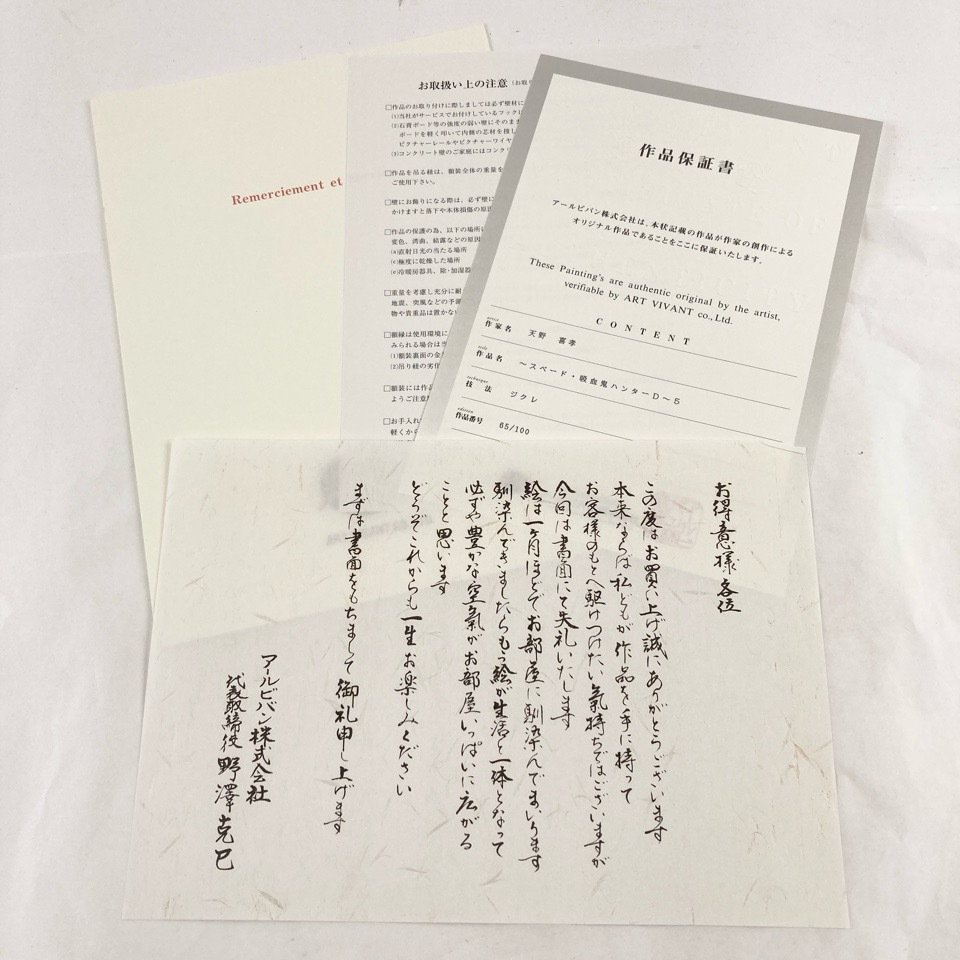 Remerciement et
お取扱い上の注意
□作品のお取り付けに際しましては必ず壁材に
(1)当社がサービスでお付けしているフックに
(2)石膏ボード等の強度の弱い壁にそのまま
ボードを軽く叩いて内側の芯材を捜し
ピクチャーレールやピクチャーワイヤ
(3)コンクリート壁のご家庭にはコンクリ
□作品を吊る紐は、額装全体の重量を
ご使用下さい。
□壁にお飾りになる際は、必ず壁に
かけますと落下や本体損傷の原因
□作品の保護の為、以下の場所に
変色、湾曲、結露などの原因
(a)直射日光の当たる場所
(c)極度に乾燥した場所
(e)冷暖房器具、除・加湿器
□重量を考慮し充分に耐
地震、突風などの予測
物や貴重品は置かない
□額縁は使用環境に
みられる場合は当
(1)額装裏面の金具
(2)吊り紐の劣化
□額装には作品
ようご注意
□お手入れ
軽くから
作品保証書
アールビバン株式会社は、本状記載の作品が作家の創作による
オリジナル作品であることをここに保証いたします。
These Painting's are authentic original by the artist,
verifiable by ART VIVANT co., Ltd.
CONTENT
artist
作家名 天野 喜孝
title
作品名 ～スペード・吸血鬼ハンターD～5
technique
技法 ジクレ
edition
作品番号 65/100
お得意様各位
この度はお買い上げ誠にありがとうございます
本来ならば私どもが作品を手に持って
お客様のもとへ駆けつけたい氣持ちではございますが
今回は書面にて失礼いたします
絵は一ヶ月ほどでお部屋に馴染んでまいります
馴染んできましたらもう絵が生活と一体となって
必ずや豊かな空氣がお部屋いっぱいに広がる
ことと思います
どうぞこれからも一生お楽しみください
まずは書面をもちまして御礼申し上げます
アールビバン株式会社
代表取締役 野澤克巳